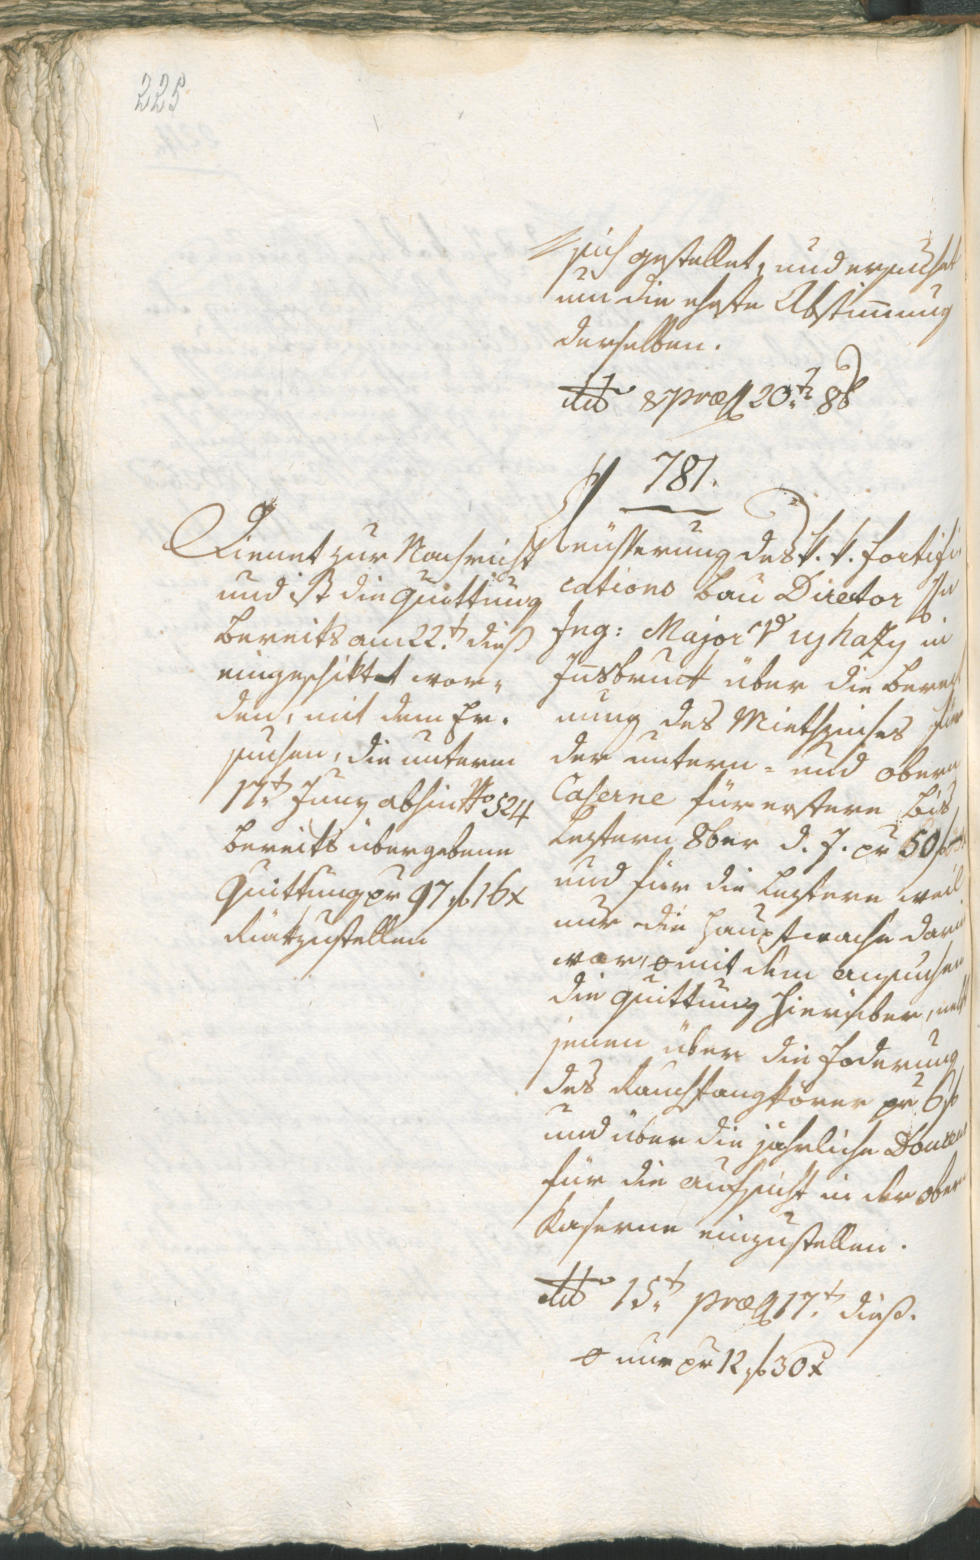 225
sich gestellet, und ersuchet
um die ehste Abstimmung
derselben.
dto 8 præs 20t 8b
781.
Dienet zur Nachricht
und ist die Quittung
bereits am 22t dieß
eingeschikt wor-
den, mit dem Er-
suchen, die unterm
17t Juny abhin No 524
bereits übergebene
Quittung pr 97 f 16 x
rükzustellen
Äusserung des k. k. Fortifi-
cations Bau Director
Ing: Major v Ujhazy in
Innsbruck über die Berech
nung des Miethzinses für
der untern- und obern
Caserne für erstere bis
leztern 8ber d. J. pr 50 f
und für die leztere weil
nur die Hauptwache darin
war, o mit dem ansuchen
die Quittung hierüber, nebst
jenen über die Foderung
des Rauchfangkörer pr 6 f
und über die jährliche Douceur
für die aufsicht in der obern
Kaserne einzustellen.
dto 15t præs 17t dieß.
o nur pr 12 f 30 x